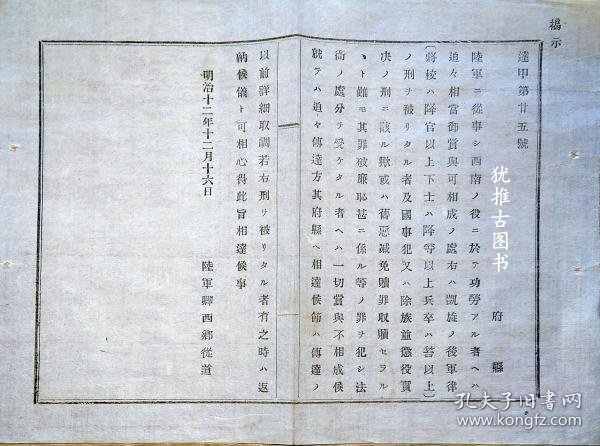 揭示
達甲第廿五號
府縣
陸軍ニ從事シ西南ノ役ニ於テ功勞アル者ヘハ
追々相當御賞與可相成ノ處右ハ凱旋ノ後軍律
〔將校ハ降官以上下士ハ降等以上兵卒ハ笞以上〕
ノ刑ヲ被リタル者及國事犯又ハ除族並懲役實
决ノ刑ニ該ル歟或ハ舊惡减免贖罪収贖セラル
ヽト雖モ其罪破廉耻甚ニ係ル等ノ罪ヲ犯シ法
衙ノ處分ヲ受ケタル者ヘハ一切賞與不相成候
就テハ追々傳達方其府縣ヘ相達候節ハ傳達ノ
以前詳細取調若右刑ヲ被リタル者有之時ハ返
納候儀ト可相心得此旨相達候事
明治十二年十二月十六日
陸軍卿西鄉從道
犹推古图书
孔夫子旧书网